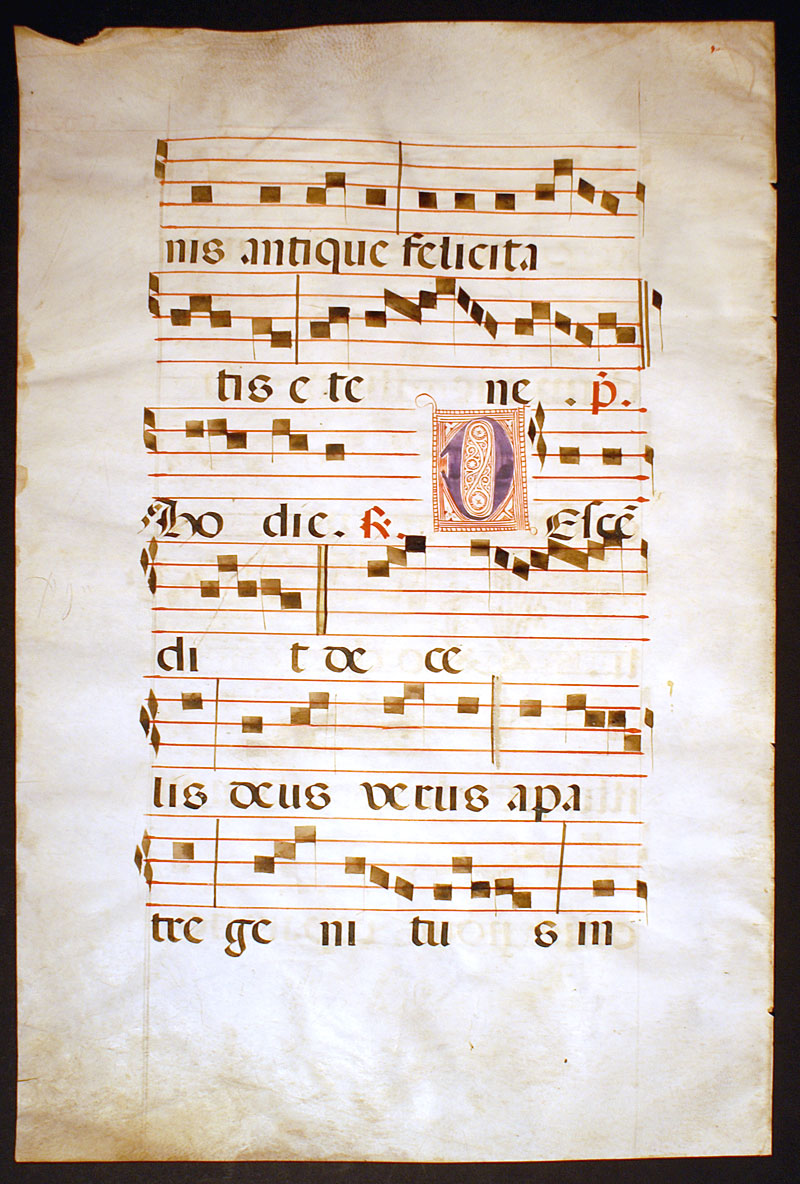 nis antique felicita
tis e te ne . p̄.
Ho die. R. DEscē
di t de ce
lis deus verus a pa
tre ge ni tu s in